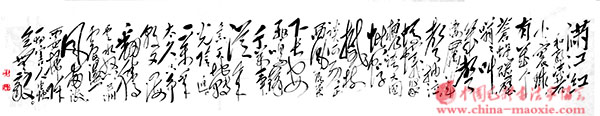 满江红
小小寰球
有几个
苍蝇碰壁
嗡嗡叫
几声凄厉
几声抽泣
蚂蚁缘槐
夸大国
蚍蜉
撼树
谈何易
正西风落叶
下长安
飞鸣镝
多少事
从来急
天地转
光阴迫
一万年
太久只争
朝夕
四海翻腾
云水怒
五洲震荡
风雷激
全无敌
china-maoxie.com